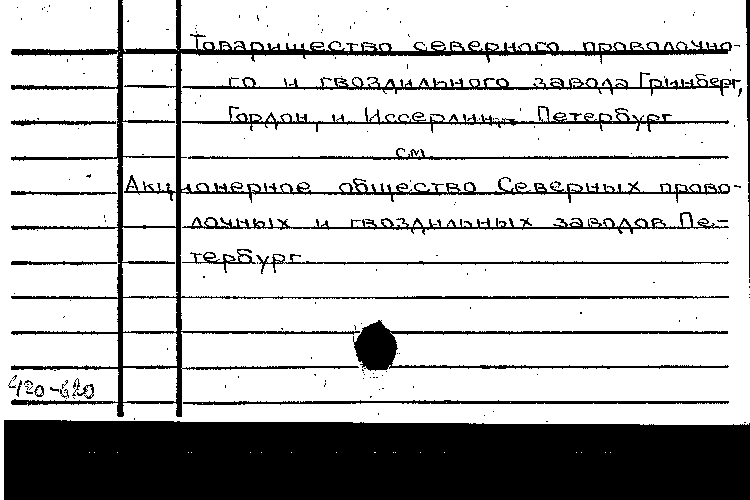 Товарищество северного проволочно-
го и гвоздильного завода Гринберг,
Гордон, и Иссерлин, Петербург
см.
Акционерное общество Северных прово-
лочных и гвоздильных заводов Пе-
тербург.
420-620